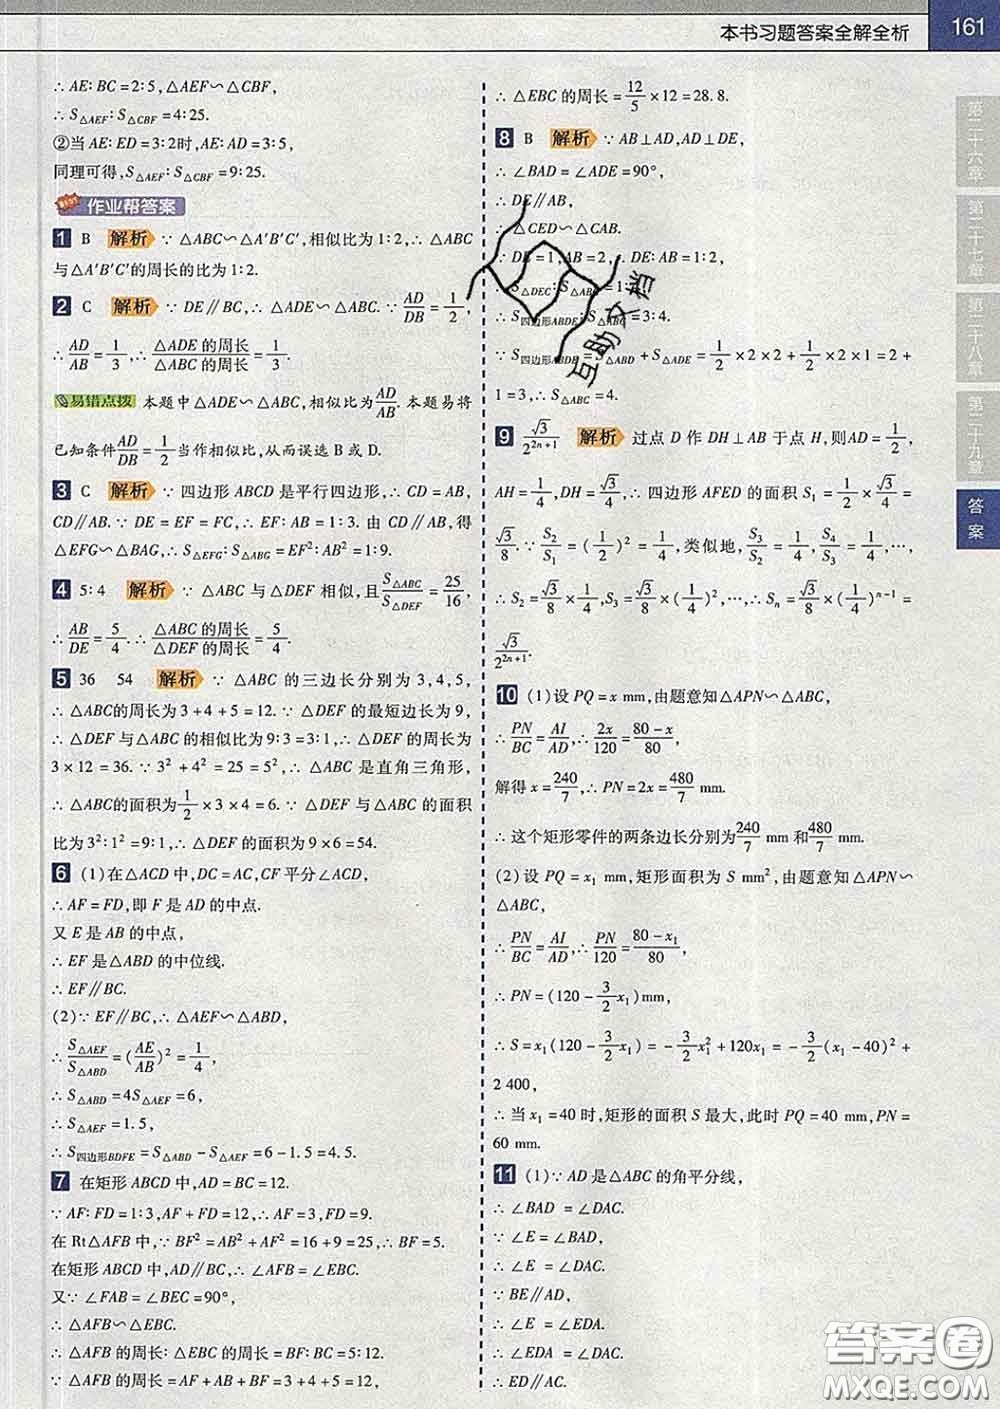 本书习题答案全解全析
161
∴ AE∶BC=2∶5,△AEF∽△CBF,
∴ S△AEF∶S△CBF=4∶25.
②当 AE∶ED=3∶2时,AE∶AD=3∶5,
同理可得,S△AEF∶S△CBF=9∶25.
作业帮答案
1 B 解析 ∵ △ABC∽△A′B′C′,相似比为1∶2,∴ △ABC
与△A′B′C′的周长的比为1∶2.
2 C 解析 ∵ DE∥BC,∴ △ADE∽△ABC. ∵ AD/DB=1/2,
∴ AD/AB=1/3,∴ △ADE 的周长/△ABC 的周长=1/3.
易错点拨 本题中△ADE∽△ABC,相似比为AD/AB. 本题易将
已知条件AD/DB=1/2当作相似比,从而误选 B 或 D.
3 C 解析 ∵ 四边形 ABCD 是平行四边形,∴ CD=AB,
CD∥AB. ∵ DE=EF=FC,∴ EF∶AB=1∶3. 由 CD∥AB, 得
△EFG∽△BAG,∴ S△EFG∶S△ABG=EF²∶AB²=1∶9.
4 5∶4 解析 ∵ △ABC 与△DEF 相似,且S△ABC/S△DEF=25/16,
∴ AB/DE=5/4. ∴ △ABC 的周长/△DEF 的周长=5/4.
5 36 54 解析 ∵ △ABC 的三边长分别为 3,4,5,
∴ △ABC的周长为3+4+5=12. ∵ △DEF 的最短边长为 9,
∴ △DEF 与△ABC 的相似比为9∶3=3∶1,∴ △DEF 的周长为
3×12=36. ∵ 3²+4²=25=5²,∴ △ABC 是直角三角形,
∴ △ABC的面积为1/2×3×4=6. ∵ △DEF 与△ABC 的面积
比为3²∶1²=9∶1,∴ △DEF 的面积为9×6=54.
6 (1)在△ACD 中,DC=AC,CF 平分∠ACD,
∴ AF=FD,即 F 是 AD 的中点.
又 E 是 AB 的中点,
∴ EF 是△ABD 的中位线.
∴ EF∥BC.
(2)∵ EF∥BC,∴ △AEF∽△ABD,
∴ S△AEF/S△ABD=(AE/AB)²=1/4,
∴ S△ABD=4S△AEF=6,
∴ S△AEF=1.5,
∴ S四边形BDFE=S△ABD-S△AEF=6-1.5=4.5.
7 在矩形 ABCD 中,AD=BC=12.
∵ AF∶FD=1∶3,AF+FD=12,∴ AF=3,FD=9.
在 Rt△AFB 中,∵ BF²=AB²+AF²=16+9=25,∴ BF=5.
在矩形 ABCD 中,AD∥BC,∴ ∠AFB=∠EBC.
又∵ ∠FAB=∠BEC=90°,
∴ △AFB∽△EBC.
∴ △AFB 的周长∶△EBC 的周长=BF∶BC=5∶12.
∵ △AFB 的周长=AF+AB+BF=3+4+5=12,
∴ △EBC 的周长=12/5×12=28.8.
8 B 解析 ∵ AB⊥AD,AD⊥DE,
∴ ∠BAD=∠ADE=90°,
∴ DE∥AB,
∴ △CED∽△CAB.
∵ DE=1,AB=2,∴ DE∶AB=1∶2,
∴ S△DEC∶S△ABC=1∶4,
∴ S四边形ABDE∶S△ABC=3∶4.
∵ S四边形ABDE=S△ABD+S△ADE=1/2×2×2+1/2×2×1=2+
1=3,∴ S△ABC=4.
9 √3/2²ⁿ⁺¹ 解析 过点 D 作 DH⊥AB 于点 H,则AD=1/2,
AH=1/4,DH=√3/4,∴ 四边形 AFED 的面积 S₁=1/2×√3/4=
√3/8. ∵ S₂/S₁=(1/2)²=1/4,类似地,S₃/S₂=1/4,S₄/S₃=1/4,…,
∴ S₂=√3/8×1/4,S₃=√3/8×(1/4)²,…,∴ Sₙ=√3/8×(1/4)ⁿ⁻¹=
√3/2²ⁿ⁺¹.
10 (1)设 PQ=x mm,由题意知△APN∽△ABC,
∴ PN/BC=AI/AD,∴ 2x/120=(80-x)/80,
解得 x=240/7,∴ PN=2x=480/7 mm.
∴ 这个矩形零件的两条边长分别为240/7 mm 和480/7 mm.
(2)设 PQ=x₁ mm,矩形面积为 S mm²,由题意知△APN∽
△ABC,
∴ PN/BC=AI/AD,∴ PN/120=(80-x₁)/80,
∴ PN=(120-3/2x₁)mm,
∴ S=x₁(120-3/2x₁)=-3/2x₁²+120x₁=-3/2(x₁-40)²+
2 400,
∴ 当 x₁=40 时,矩形的面积 S 最大,此时 PQ=40 mm,PN=
60 mm.
11 (1)∵ AD 是△ABC 的角平分线,
∴ ∠BAD=∠DAC.
∵ ∠E=∠BAD,
∴ ∠E=∠DAC.
∵ BE∥AD,
∴ ∠E=∠EDA.
∴ ∠EDA=∠DAC,
∴ ED∥AC.
第二十六章
第二十七章
第二十八章
第二十九章
答案
互助文档
答案圈
MXQE.COM